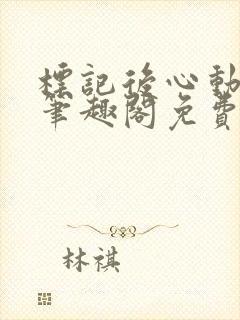 標記後心動
筆趣閣免費
林祺